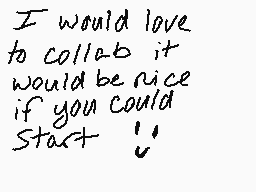 I would love
to collab it
would be nice
if you could
start !!